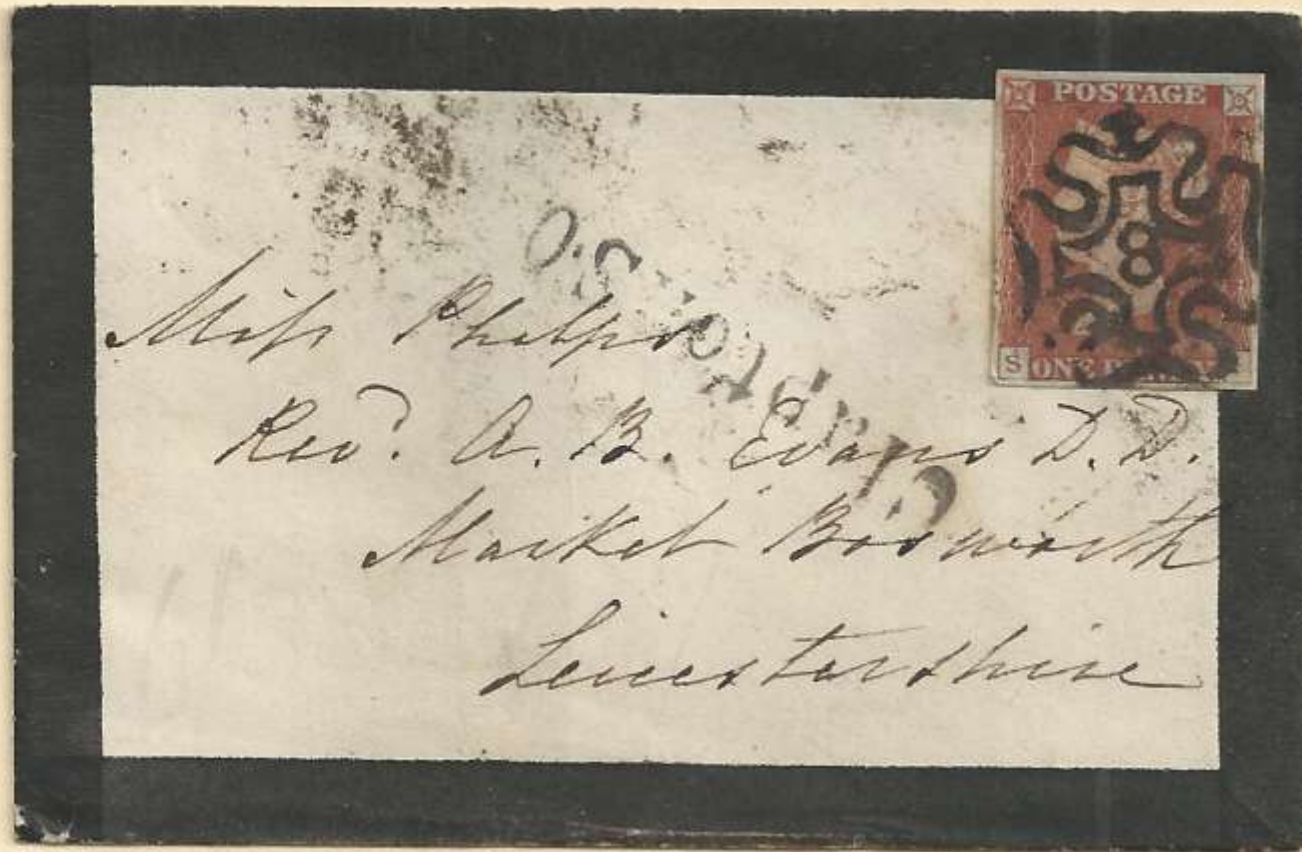 POSTAGE
8
S ONE PENNY
Clapton S.O
Miſs Phelps
Revd. A. B. Evans D. D.
Market Bosworth
Leicestershire